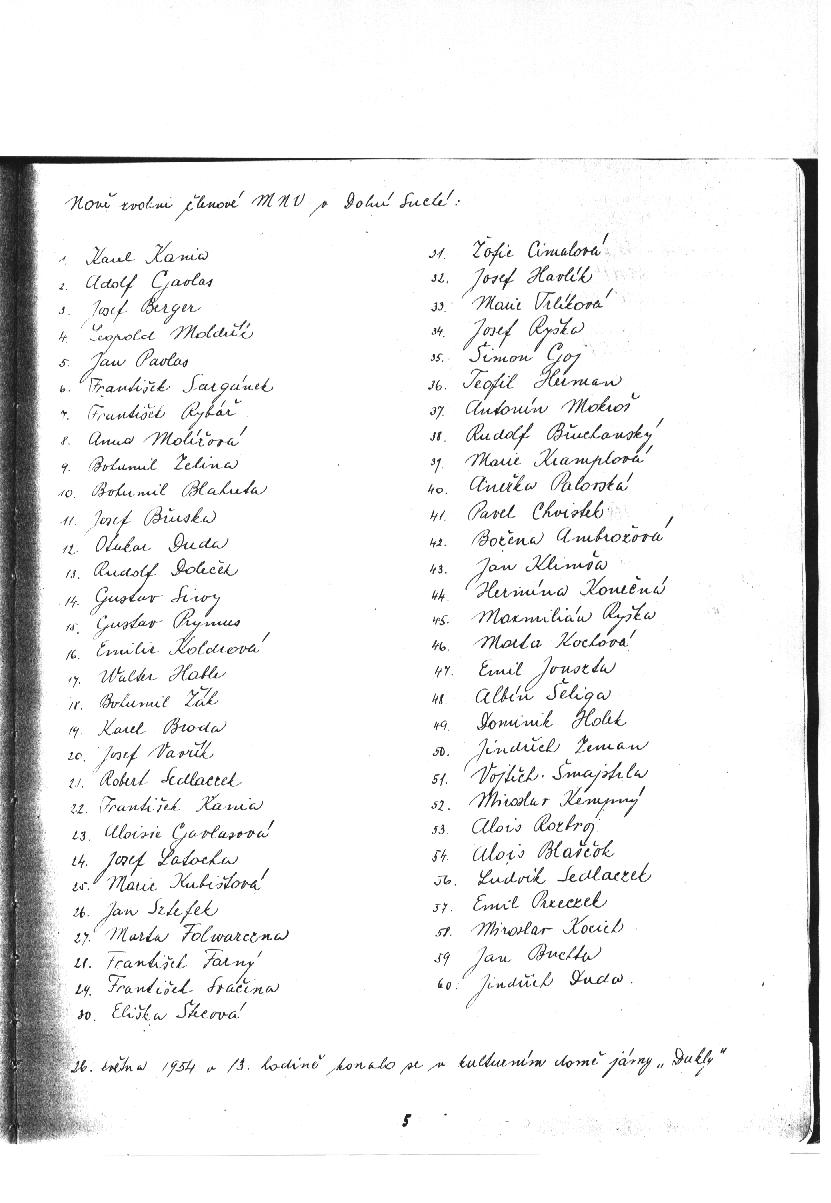 Nově zvolení členové MNV v Dolní Suché:
1. Karel Kania
2. Adolf Gavlas
3. Josef Berger
4. Leopold Moldřík
5. Jan Pavlas
6. František Sargánek
7. František Rybář
8. Anna Molířová
9. Bohumil Zelina
10. Bohumil Blahuta
11. Josef Bruska
12. Otakar Duda
13. Rudolf Doleček
14. Gustav Siwy
15. Gustav Prymus
16. Emilie Koldrová
17. Walter Hable
18. Bohumil Žák
19. Karel Broda
20. Josef Vavřík
21. Robert Sedlaczek
22. František Kania
23. Aloisie Gavlasová
24. Josef Latocha
25. Marie Kubištová
26. Jan Sztefek
27. Marta Folwarczna
28. František Farný
29. František Svačina
30. Eliška
31. Žofie Cimalová
32. Josef Havlík
33. Marie Trlíková
34. Josef Ryška
35. Šimon Goj
36. Teofil Herman
37. Antonín Mokroš
38. Rudolf Břuchanský
39. Marie Kramplová
40. Anežka Palovská
41. Pavel Chvistek
42. Božena Ambrožová
43. Jan Klimša
44. Hermína Konečná
45. Maxmilián Ryška
46. Marta Kochová
47. Emil Jonszta
48. Albín Šeliga
49. Dominik Holek
50. Jindřich Zeman
51. Vojtěch Šmajstrla
52. Miroslav Kempný
53. Alois Rozbroj
54. Alois Blaščok
56. Ludvík Sedlaczek
57. Emil Przeczek
58. Miroslav Kocich
59 Jan Buchta
60. Jindřich Duda.
26. května 1954 v 13. hodině konalo se v kulturním domě jámy „Dukly"
5